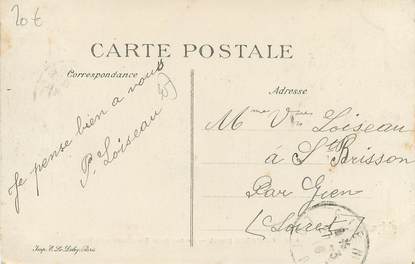 20€
CARTE POSTALE
Correspondance
Adresse
Je pense bien a vous
P. Loiseau
Mme Vve Loiseau
à St Brisson
Par Gien
(Loiret)
Imp. E. Le Deley, Paris